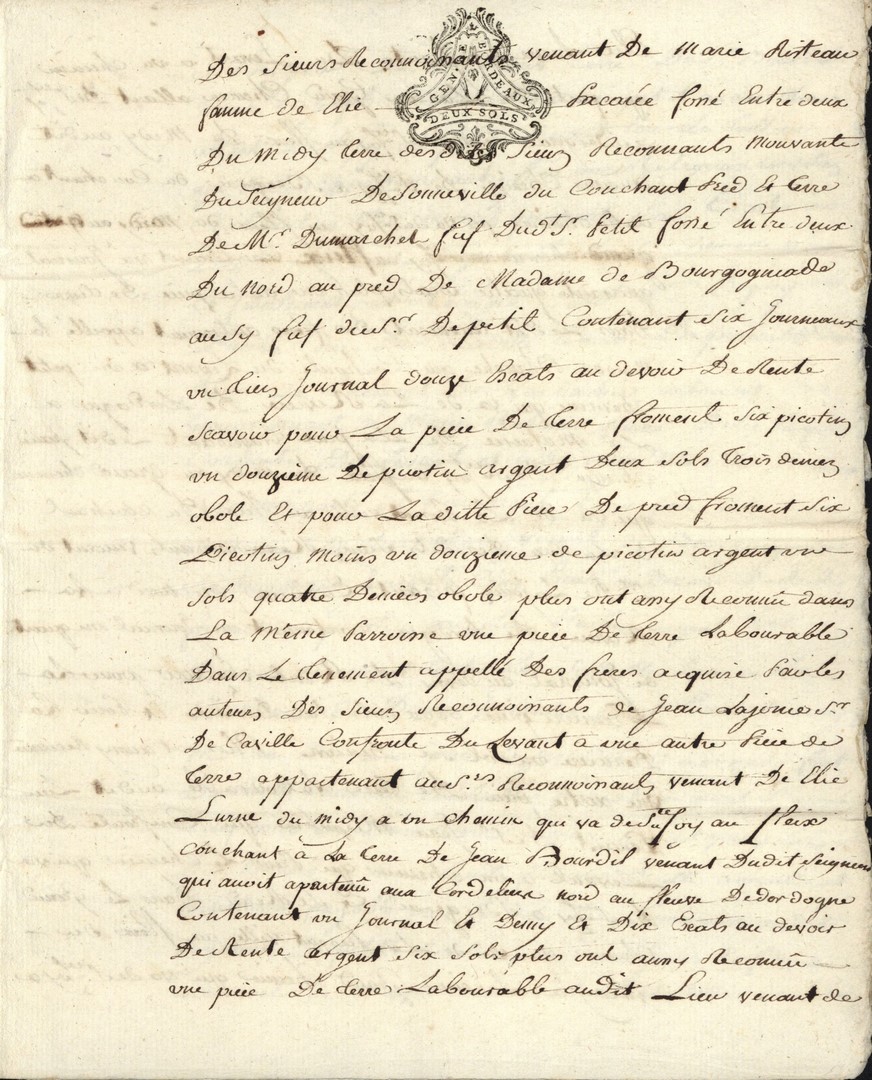 Des sieurs Reconnoissants venant De marie Risteau
famme de Elie Lacarée fossé Entre deux
Du midy terre des dits Sieurs Reconnants Mouvante
Du Seigneur De Sonneville du Couchant Pred Et terre
De Mr. Dumarchet fief Dudt Sr. Petit fossé Entre deux
Du nord au pred De Madame de Bourgogniade
ausy fief du Sr. De petit Contenant six Journeaux
un tiers Journal douze Escats au devoir De Rente
scavoir pour La pièce De terre froment six picotins
un douzième De picotin argent Deux sols trois deniers
obole Et pour La ditte Piece De pred froment six
Picotins moins un douzieme de picotin argent un
sols quatre Deniers obole plus ont ausy Reconnû dans
La même Parroisse une pièce De terre Labourable
Dans Le tenement appellé Des frères acquise Par les
auteurs Des sieurs Reconnoissants de Jean Lajonie Sr.
De Caville Confronte Du Levant a une autre Pièce de
terre appartenant au Srs Reconnoissants venant De Elie
Lurne du midy a un chemin qui va de Ste foy au fleix
couchant à La terre De Jean Bourdil venant Dudit Seigneur
qui avoit apartenû aux Cordeliers nord au fleuve Dedordogne
Contenant un Journal Et Demy Et Dix Escats au devoir
De Rente argent six sols plus ont aussy Reconnû
une pièce De terre Labourable audit Lieu venant de
GEN DE BORDEAUX
DEUX SOLS